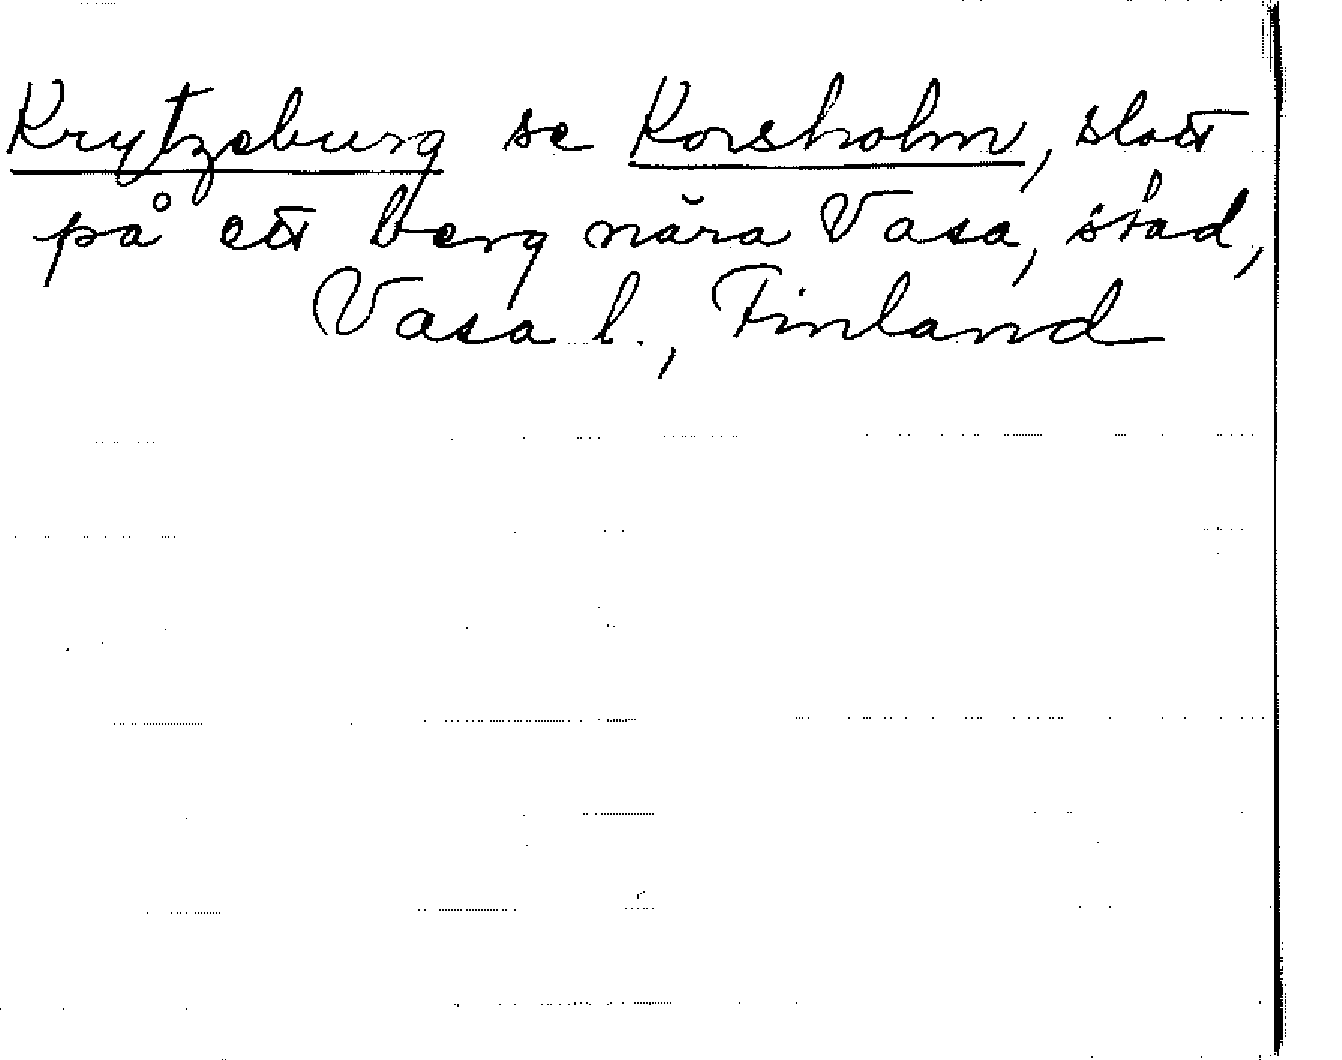 Krytzeburg se Korsholm, slott
på ett berg nära Vasa, stad,
Vasa l., Finland